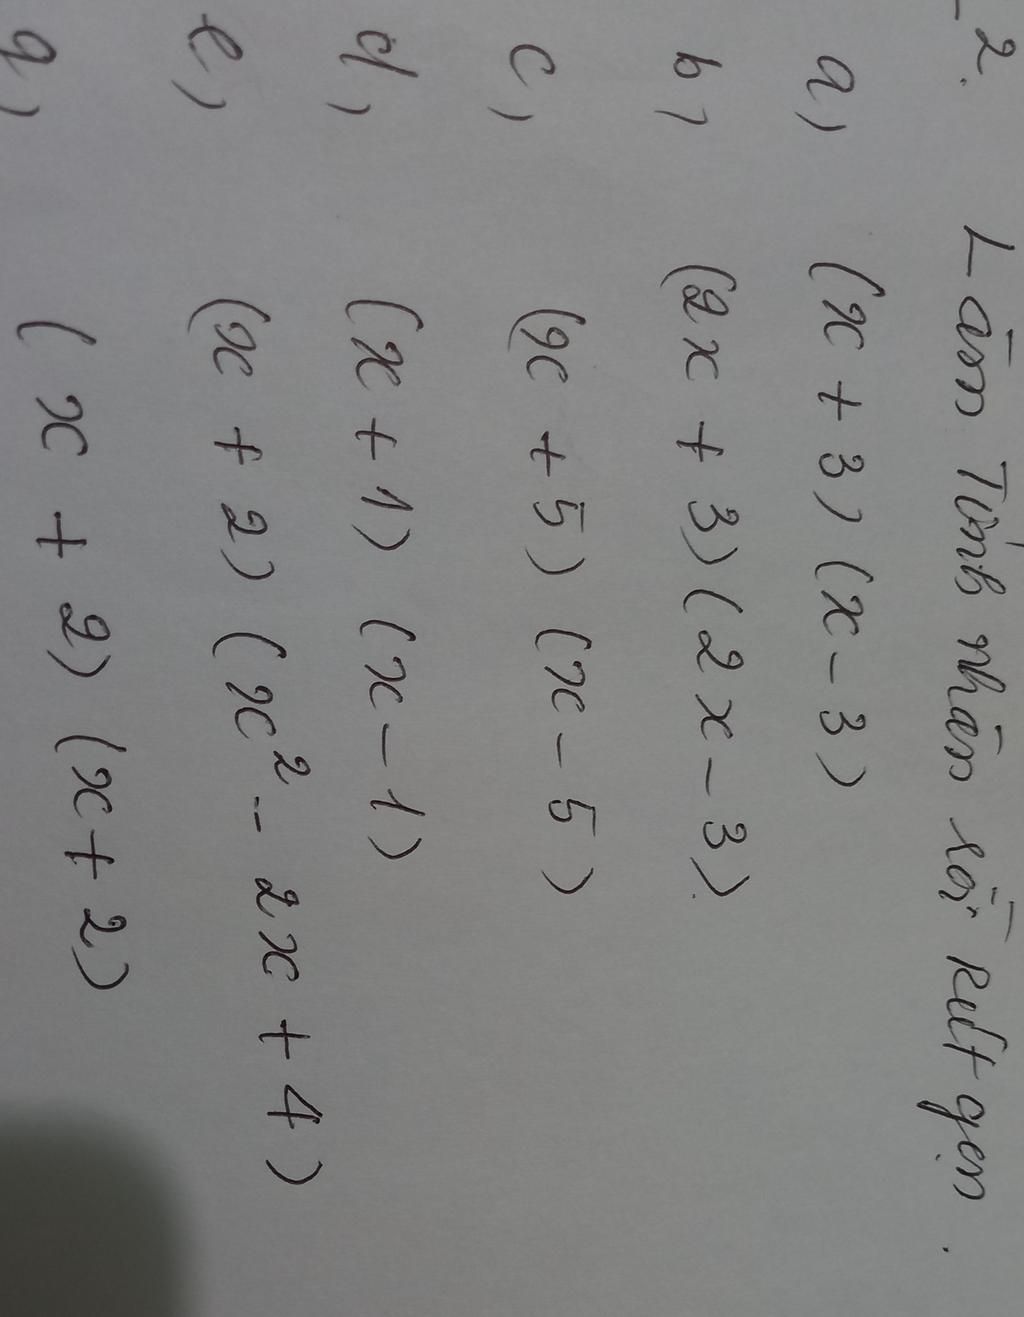 2. Làm Tính nhân rồi Rút gọn.
a) (x + 3) (x - 3)
b) (2x + 3) (2x - 3)
c) (x + 5) (x - 5)
d) (x + 1) (x - 1)
e) (x + 2) (x² - 2x + 4)
g) (x + 2) (x + 2)